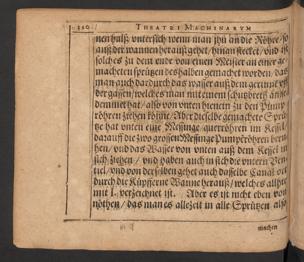 110 THEATRI MACHINARVM
nenhülß untersich wenn man ihn an die Röhre / so
auß der wannen herauß gehet / hinan stecket / und ist
solches zu dem ende von einen Meister an einer ge-
macheten sprützen deshalben gemacht worden / das
man auch dardurch das wasser auß dem gerinne
der gassen / welches man mit einem schutzbrett
demmet hat / also von unten hienein zu den Pump
röhren ziehen könne. Aber dieselbe gemachete Sprü
tze hat unten eine Messinge querröhren im Kessel
darauff die zwo grossen Messinge Pumperöhren
hen / und das Wasser von unten auß dem Kessel in
sich ziehen / und haben auch in sich die untern Ven-
tiel / und von derselben gehet auch dasselbe
durch die Küpfferne Wanne herauß / welches allhie
mit I. verzeichnet ist. Aber es ist nicht eben von
nöthen / das man es allezeit in alle Sprützen also
machen